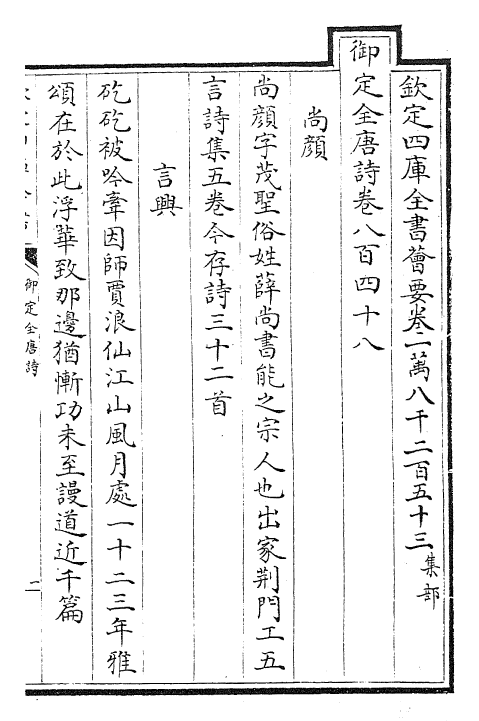 欽定四庫全書薈要卷一萬八千二百五十三 集部
御定全唐詩卷八百四十八
尚顔
尚顔字茂聖俗姓薛尚書能之宗人也出家荆門工五
言詩集五卷今存詩三十二首
言興
矻矻被吟牽因師賈浪仙江山風月處一十二三年雅
頌在於此浮華致那邊猶慚功未至謾道近千篇
御定全唐詩